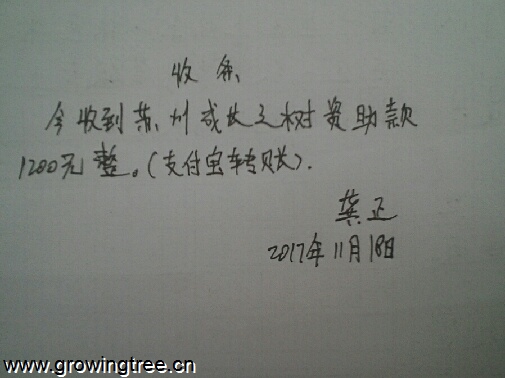 收条
今收到苏州成长之树资助款
1200元整。(支付宝转账).
龚正
2017年11月18日
www.growingtree.cn